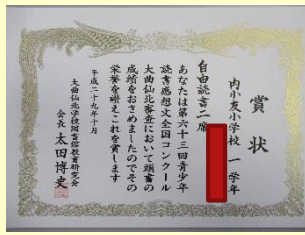 賞状
内小友小学校 一学年
自由読書二席
あなたは第六十三回青少年
読書感想文全国コンクール
大曲仙北審査において頭書の
成績をおさめましたのでその
栄誉を讃えこれを賞します
平成二十九年十月
大曲仙北学校図書館教育研究会
会長 太田博史